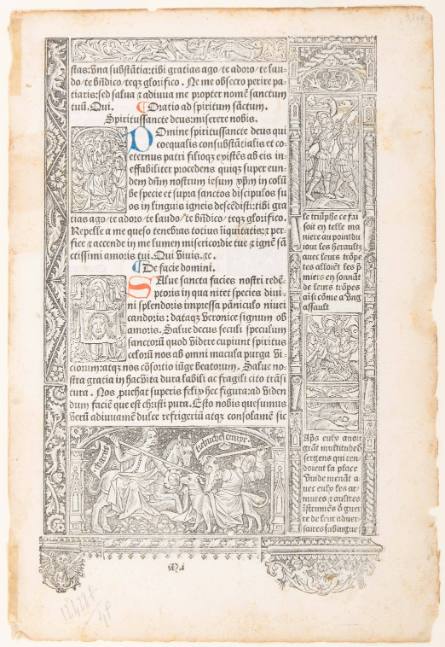 stas: vna substãtia: tibi gratias ago ⁊ te adoro ⁊ te lau⸗
do ⁊ te bñdico ⁊ teqȝ glorifico. Ne me obsecro perire pa⸗
tiaris: sed salua ⁊ adiuua me propter nomẽ sanctum
tuũ. Qui. ¶ Oratio ad spiritum sãctum.
Spiritussancte deus: miserere nobis.
DOmine spiritussancte deus qui
coequalis consubstãtialis et co
eternus patri filioqȝ existẽs ab eis in
effabiliter procedens quiqȝ super eun⸗
dem dñm nostrum iesum xp̃m in colũ
be specie et supra sanctos discipulos su
os in linguis igneis descẽdisti: tibi gra
tias ago ⁊ te adoro ⁊ te laudo ⁊ te bñdico ⁊ teqȝ glorifico.
Repelle a me queso tenebras totius iniquitatis: ⁊ per
fice ⁊ accende in me lumen misericordie tue ⁊ ignẽ sã
ctissimi amoris tui. Qui viuis. ⁊c.
¶ De facie domini.
SAlue sancta facies nostri redẽ⸗
ptoris in qua nitet species diui⸗
ni splendoris impressa pãniculo niuei
candoris: dataqȝ veronice signum ob
amoris. Salue decus seculi speculum
sanctorũ quod videre cupiunt spiritus
celorũ nos ab omni macula purga vi⸗
ciorum: atqȝ nos cõsortio iũge beatorum. Salue no⸗
stra gratia in hac vita dura labili ac fragili cito trãsi
tura. Nos
superis
felix hec figura: ad viden
dum faciẽ que est christi pura. Esto nobis quesumus
verũ adiuuamẽ dulce refrigeriũ atqȝ consolamẽ sic
le triũphe ce fai
soit en telle ma
niere au point du
iour les heraulx
auec leurs trõpe
tes
les p̃
miers en sonnãt
de leurs trõpes
aisi cõme a vng
assault
Aps
auoit
grãt multitude d
sergens qui ten⸗
doient la place
vuide menãt a⸗
uec
les ar⸗
mures ⁊ aultres
istrumẽs
guer
re de leur aduer⸗
saires